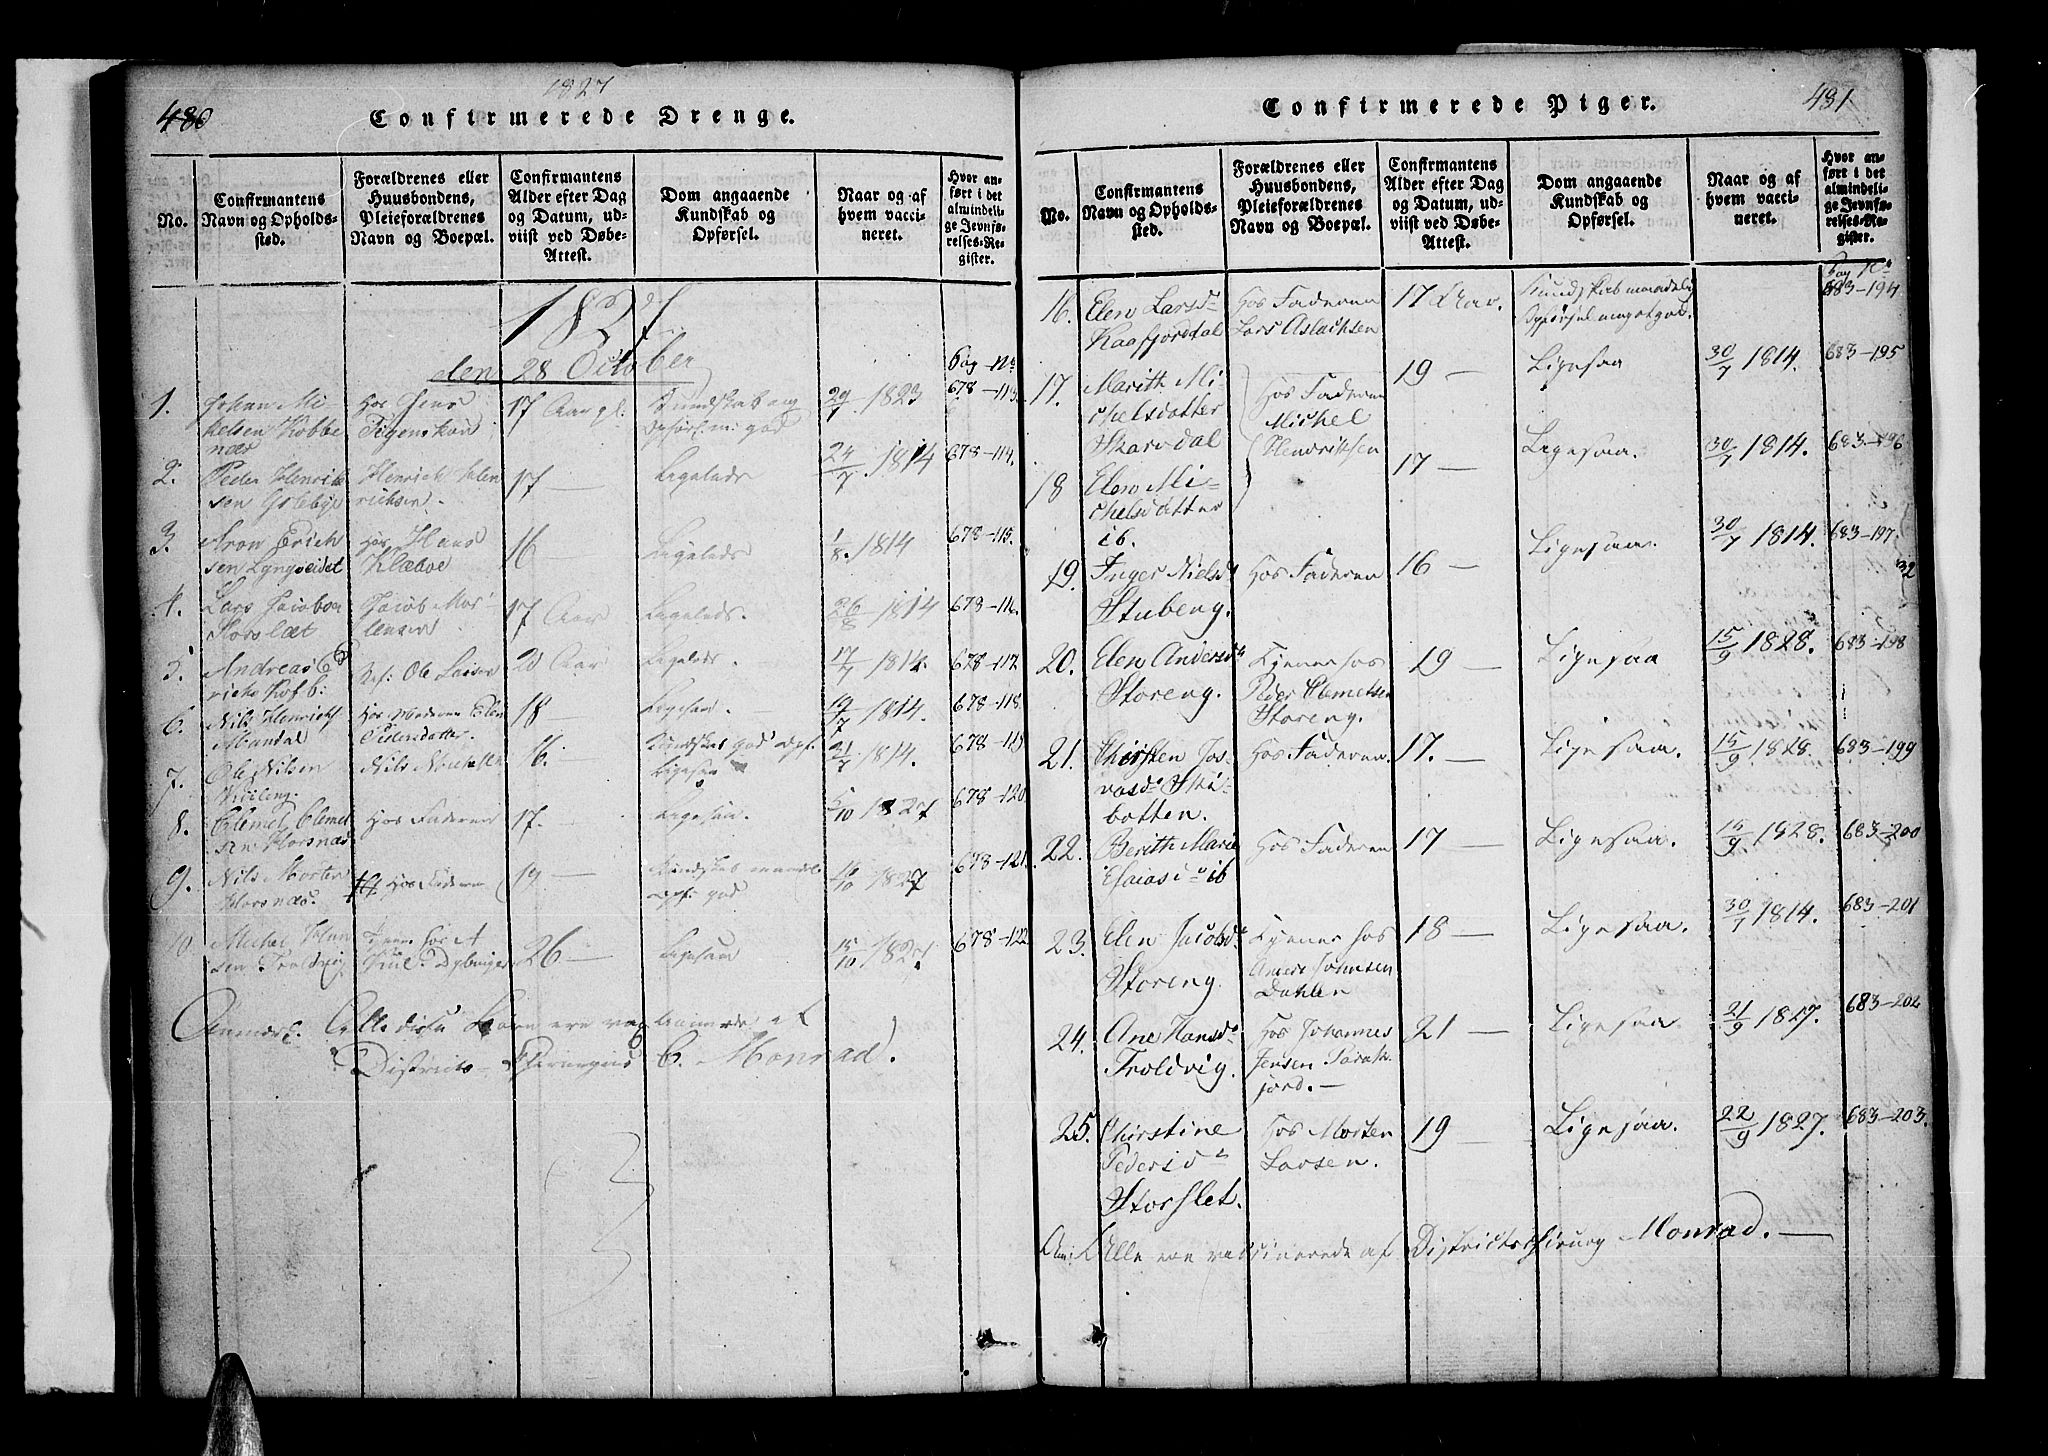 480
1827
Confirmerede Drenge.
No.
Confirmantens
Navn og Opholds-
sted.
Forældrenes eller
Huusbondens,
Pleieforældrenes
Navn og Boepæl.
Confirmantens
Alder efter Dag
og Datum, ud-
viist ved Døbe-
Attest.
Dom angaaende
Kundskab og
Opførsel.
Naar og af
hvem vacci-
neret.
Hvor an-
ført i det
almindeli-
ge Jevnfø-
relses-Re-
gister.
1827
den 28 October
Pag No
1.
Johan Mi
kelsen Kobbe
næs
Hos Jens
17 Aar gl.
Kundskab og
Opførs. m: god
29/7 1823
678-113.
2.
Peder Henrik
sen
Henrich Hen
richsen.
17 —
Ligeleds
24/7 1814
678-114.
3.
Aron Erich
sen Lyngseidet
Hos Hans
Klæboe
16 —
Ligeleds
1/8. 1814
678-115.
4.
Lars Jacobsen
Storslæt
Jacob Mor-
tensen
17 Aar
Ligeleds.
26/8 1814
678-116.
5.
Andreas
Ole Larsen
20 Aar
Ligeleds.
17/7 1814.
678-117.
6.
Nils Henrichs
Mandal
Hos Moderen Elen
Pedersdatter.
18 —
Ligesaa.
19/7 1814.
678-118.
7.
Ole Nilsen
Nils
16. —
Kundskab god opf.
Ligesaa
21/7 1814.
678-119
8.
Clemet Clemet
sen Horsnæs
Hos Faderen
17. —
Ligesaa.
5/10 1827
678-120
9.
Nils Morten
Horsnæs.
Hos Faderen
19 —
Kundskab maadel
opf: god
16/10 1827
678-121.
10.
Michel Han
sen Troldvig
Tjener hos
26 —
Ligesaa
15/10 1827.
678-122
Anmærk. Alle disse Børn ere vaccinerede af
Districts- Chirurgus C. Monrad.
481
Confirmerede Piger.
No.
Confirmantens
Navn og Opholds-
sted.
Forældrenes eller
Huusbondens,
Pleieforældrenes
Navn og Boepæl.
Confirmantens
Alder efter Dag
og Datum, ud-
viist ved Døbe-
Attest.
Dom angaaende
Kundskab og
Opførsel.
Naar og af
hvem vacci-
neret.
Hvor an-
ført i det
almindeli-
ge Jevnfø-
relses-Re-
gister.
Pag No
16.
Elen Larsd
Kaafjorddal
Hos Faderen
Lars Aslachsen
17 Aar.
Kundskab maadelig
Opførsel meget god.
683-194
17.
Marith Mi-
chelsdatter
Skarvdal
Hos Faderen
Michel
Hendriksen
19 —
Ligesaa
30/7 1814.
683-195
18
Elen Mi-
chelsdatter
ib.
17 —
Ligesaa.
30/7 1814.
683-196
19.
Inger Nielsd
Stubeng.
Hos Faderen
16 —
Ligesaa.
30/7 1814.
683-197.
32
20.
Elen Andersd
Storeng.
Tjener hos
Peder Clemetsen
Storeng.
19 —
Ligesaa
15/9 1828.
683-198
21.
Chirsten Jos-
vasd Ski-
botten.
Hos Faderen
17. —
Ligesaa.
15/9 1828.
683-199
22.
Berith Marie
Esaiasd ib
Hos Faderen
17 —
Ligesaa.
15/9 1828.
683-200
23.
Elen Jacobsd
Storeng
Tjener hos
Anders Johnsen
Dahlen
18 —
Ligesaa.
30/7 1814.
683-201
24.
Ane Hansd
Troldvig.
Hos Johannes
Jensen
fjord. —
21 —
Ligesaa
21/9 1827.
683-202
25.
Chirstine
Pedersd
Storslet.
Hos Morten
Larsen.
19 —
Ligesaa.
22/9 1827.
683-203.
Anm: Alle ere vaccinerede af Districtschirurg Monrad. —